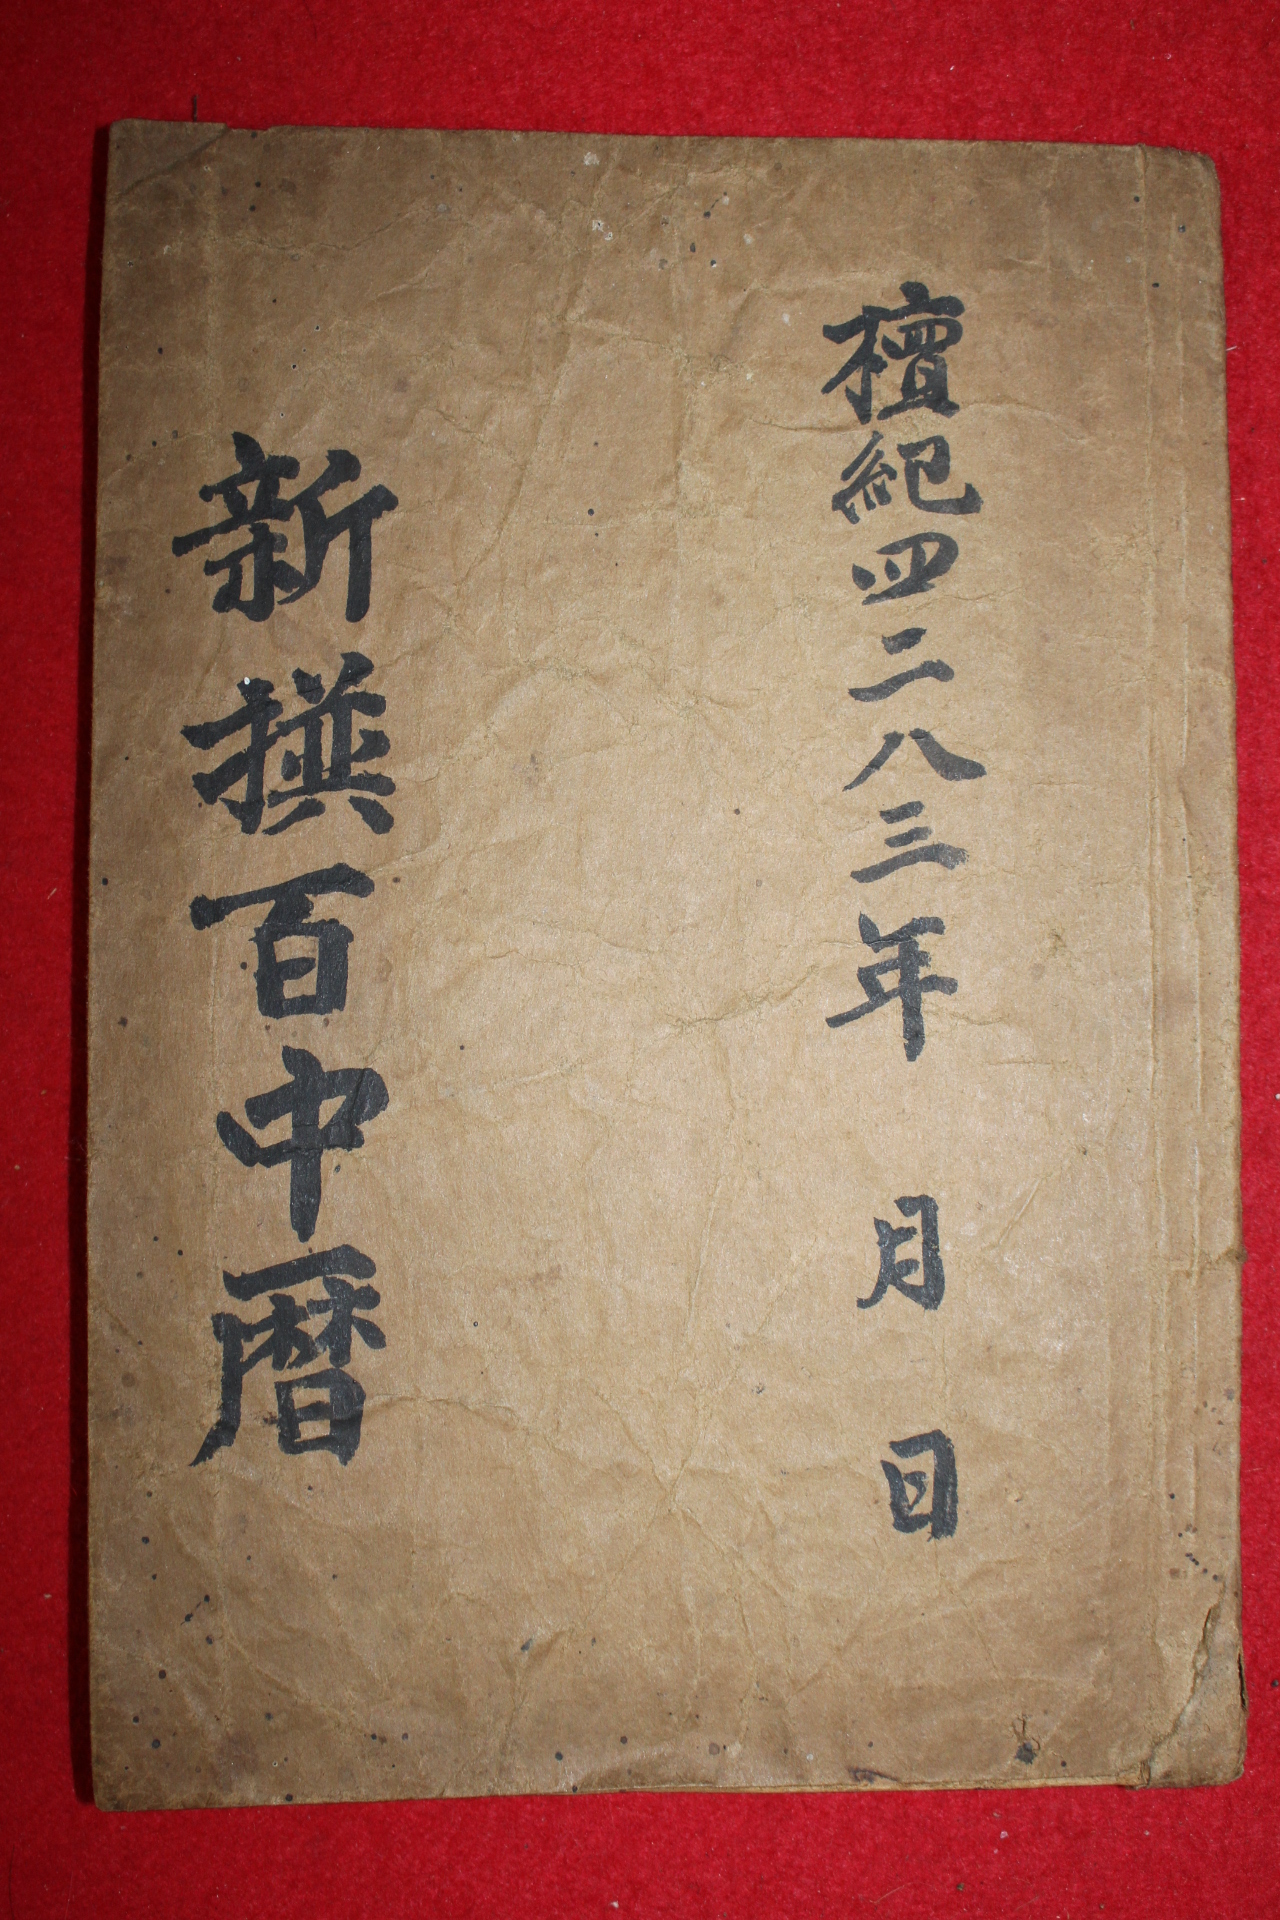 檀紀四二八三年 月 日
新撰百中暦